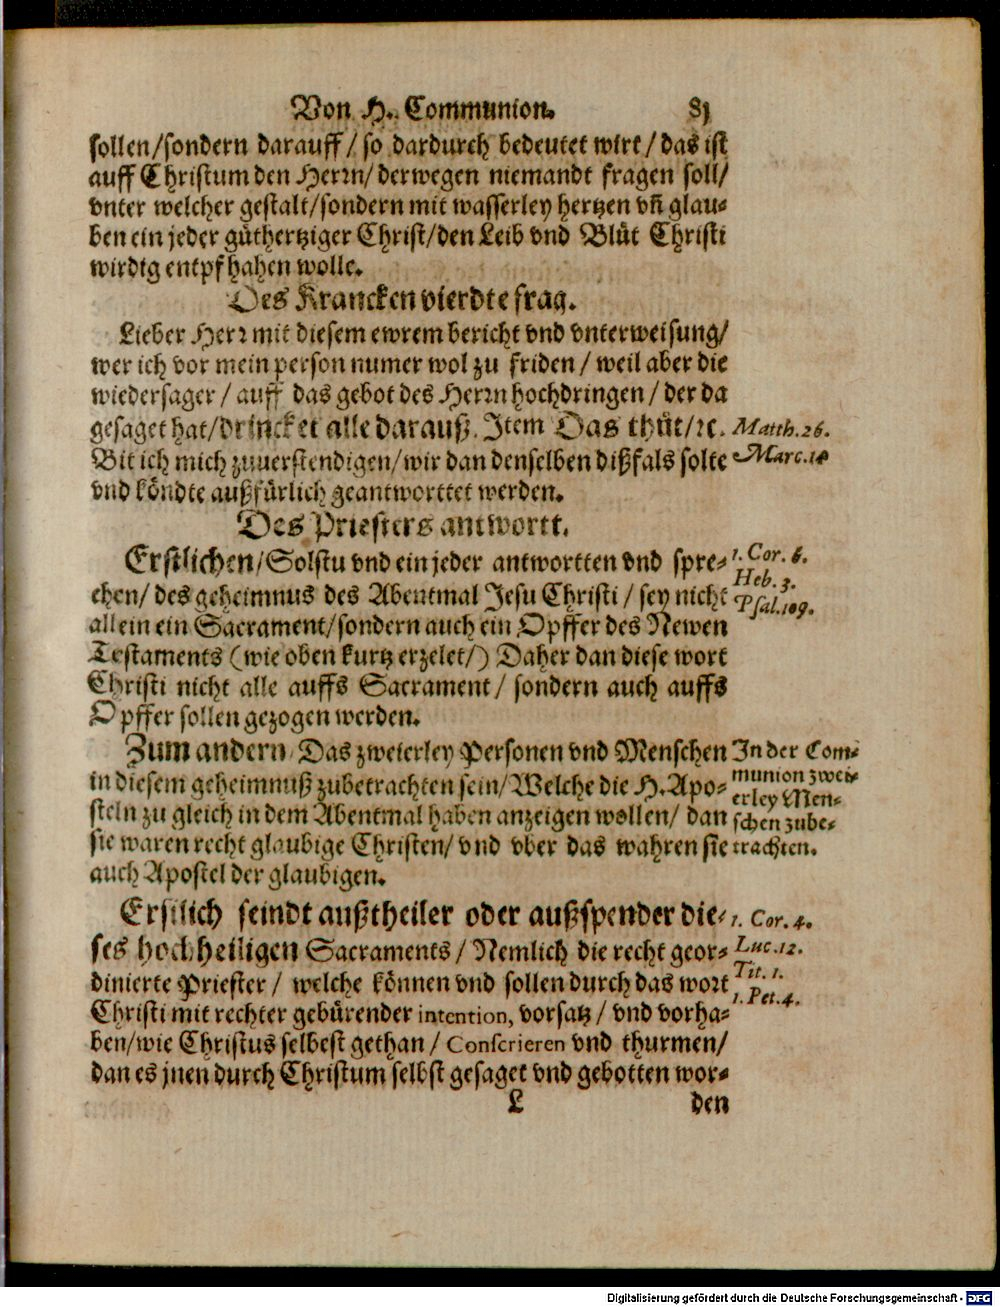 Von H. Communion. 81
sollen/sondern darauff/so dardurch bedeutet wirt/das ist
auff Christum den Herrn/derwegen niemandt fragen soll/
vnter welcher gestalt/sondern mit wasserley hertzen vñ glau-
ben ein jeder gůthertziger Christ/den Leib vnd Blůt Christi
wirdig entpfhahen wolle.
Des Krancken vierdte frag.
Lieber Herr mit diesem ewrem bericht vnd vnterweisung/
wer ich vor mein person numer wol zu friden/weil aber die
wiedersager/auff das gebot des Herrn hochdringen/der da
gesaget hat/drincket alle darauß. Item Das thůt/ꝛc. Matth.26.
Bit ich mich zuuerstendigen/wir dan denselben dißfals solte Marc.14
vnd köndte außfürlich geantworttet werden.
Des Priesters antwortt.
Erstlichen/Solstu vnd ein jeder antwortten vnd spre- 1. Cor. 6.
chen/des geheimnus des Abentmal Jesu Christi/sey nicht Heb. 3.
allein ein Sacrament/sondern auch ein Opffer des Newen Psal.109.
Testaments (wie oben kurtz erzelet/) Daher dan diese wort
Christi nicht alle auffs Sacrament/sondern auch auffs
Opffer sollen gezogen werden.
Zum andern/Das zweierley Personen vnd Menschen In der Com-
in diesem geheimnuß zubetrachten sein/Welche die H. Apo- munion zwei-
steln zu gleich in dem Abentmal haben anzeigen wollen/dan erley Men-
sie waren recht glaubige Christen/vnd vber das wahren sie schen zube-
auch Apostel der glaubigen. trachten.
Erstlich seindt außtheiler oder außspender die- 1. Cor. 4.
ses hochheiligen Sacraments/Nemlich die recht geor- Luc.12.
dinierte Priester/welche können vnd sollen durch das wort Tit. 1.
Christi mit rechter gebürender intention, vorsatz/vnd vorha- 1. Pet.4.
ben/wie Christus selbest gethan/Conscrieren vnd thurmen/
dan es jnen durch Christum selbst gesaget vnd gebotten wor-
L den
Digitalisierung gefördert durch die Deutsche Forschungsgemeinschaft - DFG